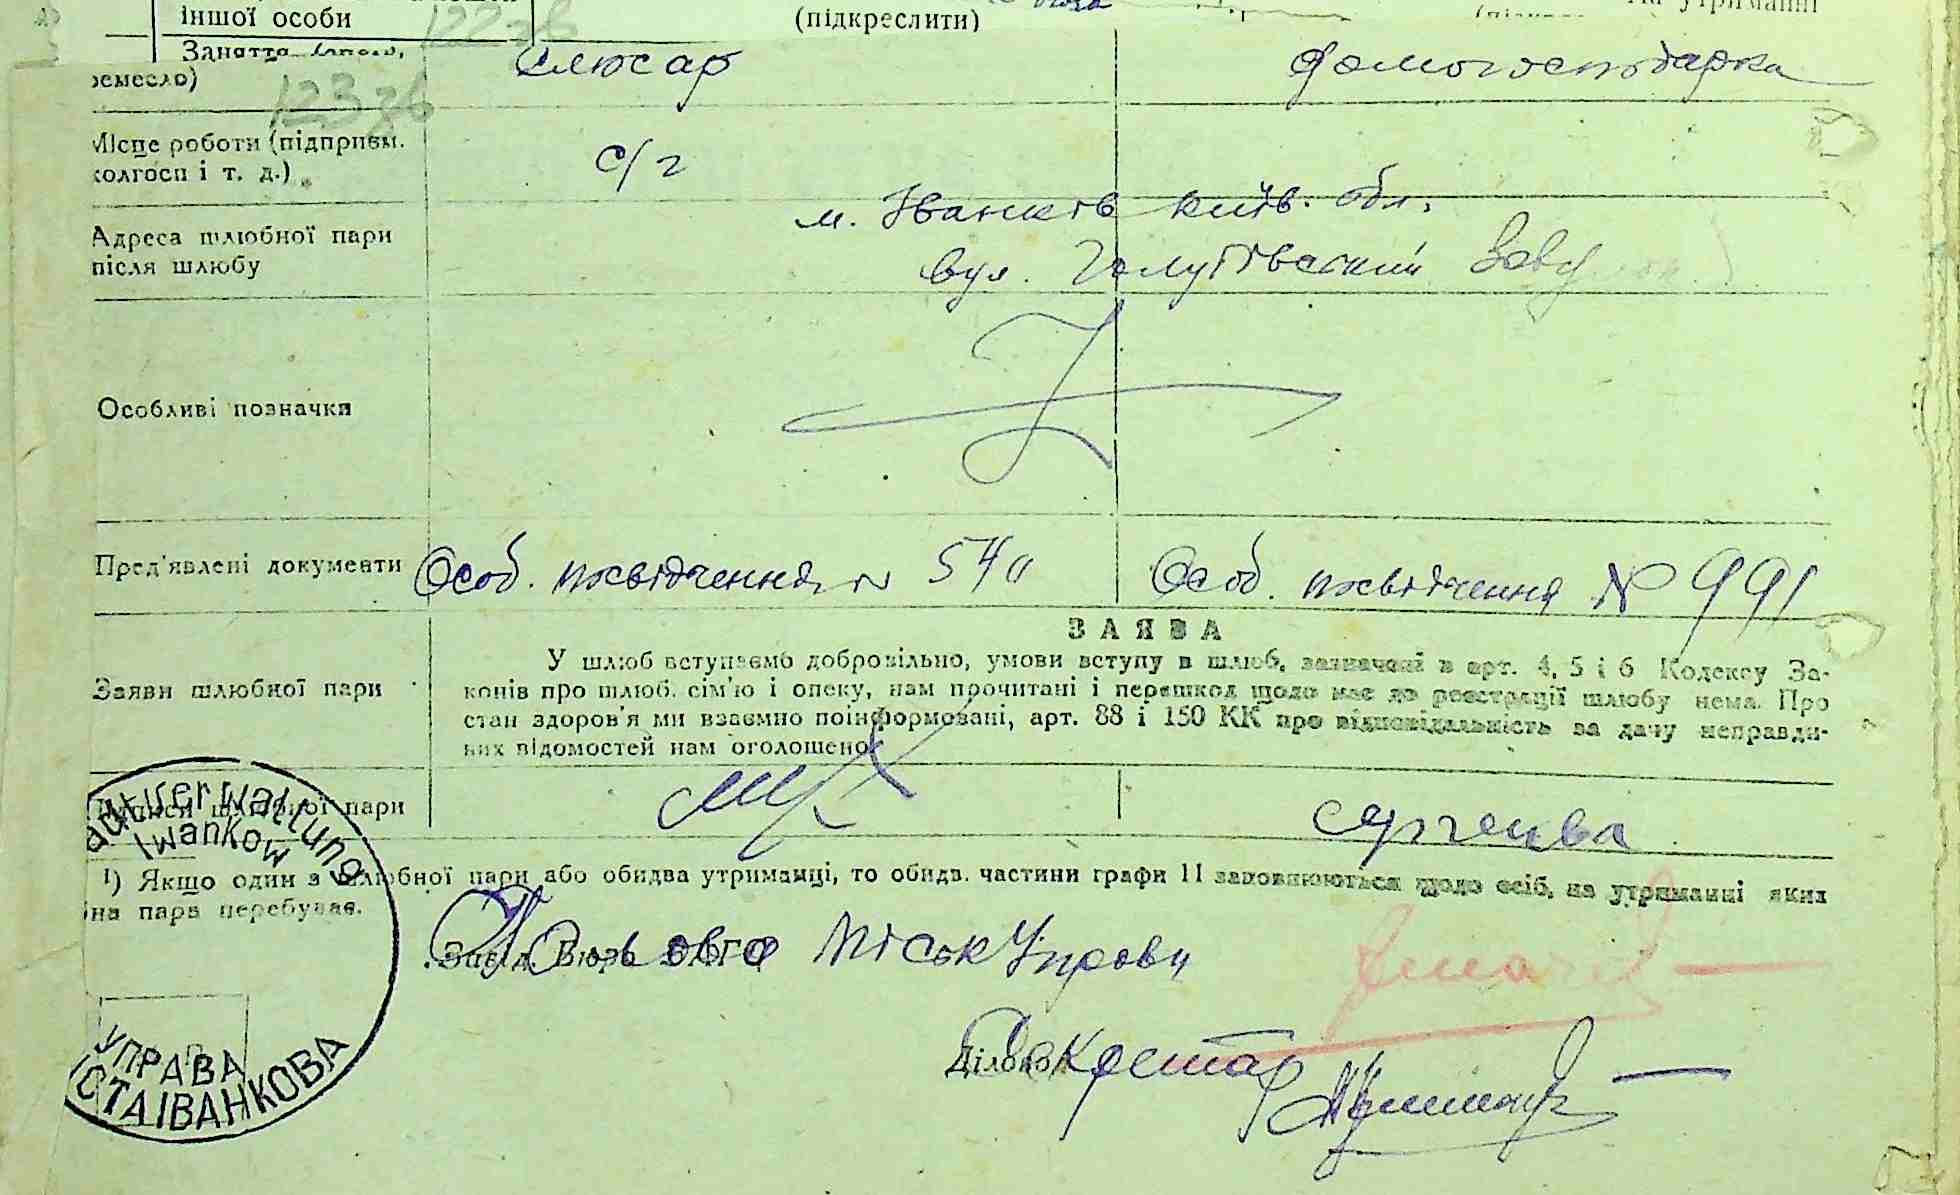 іншої особи
(підкреслити)
на утриманні
122 зв
Заняття
ремесло)
слюсар
домогосподарка
123 зв
Місце роботи (підприєм.
колгосп і т. д.)
с/г
Адреса шлюбної пари
після шлюбу
м. Іванків Київ. обл.
вул.
Особливі позначки
Пред'явлені документи
Особ. посвідчення № 540
Особ. посвідчення № 991
ЗАЯВА
Заяви шлюбної пари
У шлюб вступаємо добровільно, умови вступу в шлюб, зазначені в арт. 4, 5 і 6 Кодексу За-
конів про шлюб, сім'ю і опеку, нам прочитані і перешкод щодо нас до реєстрації шлюбу нема. Про
стан здоров'я ми взаємно поінформовані, арт. 88 і 150 КК про відповідальність за дачу неправди-
вих відомостей нам оголошено
Підписи шлюбної пари
¹) Якщо один з шлюбної пари або обидва утриманці, то обидв. частини графи 11 заповнюються щодо осіб, на утриманні яких
на пара перебуває.
МіськУправи
Секретар
Iwankow
УПРАВА
ІСТА ІВАНКОВА